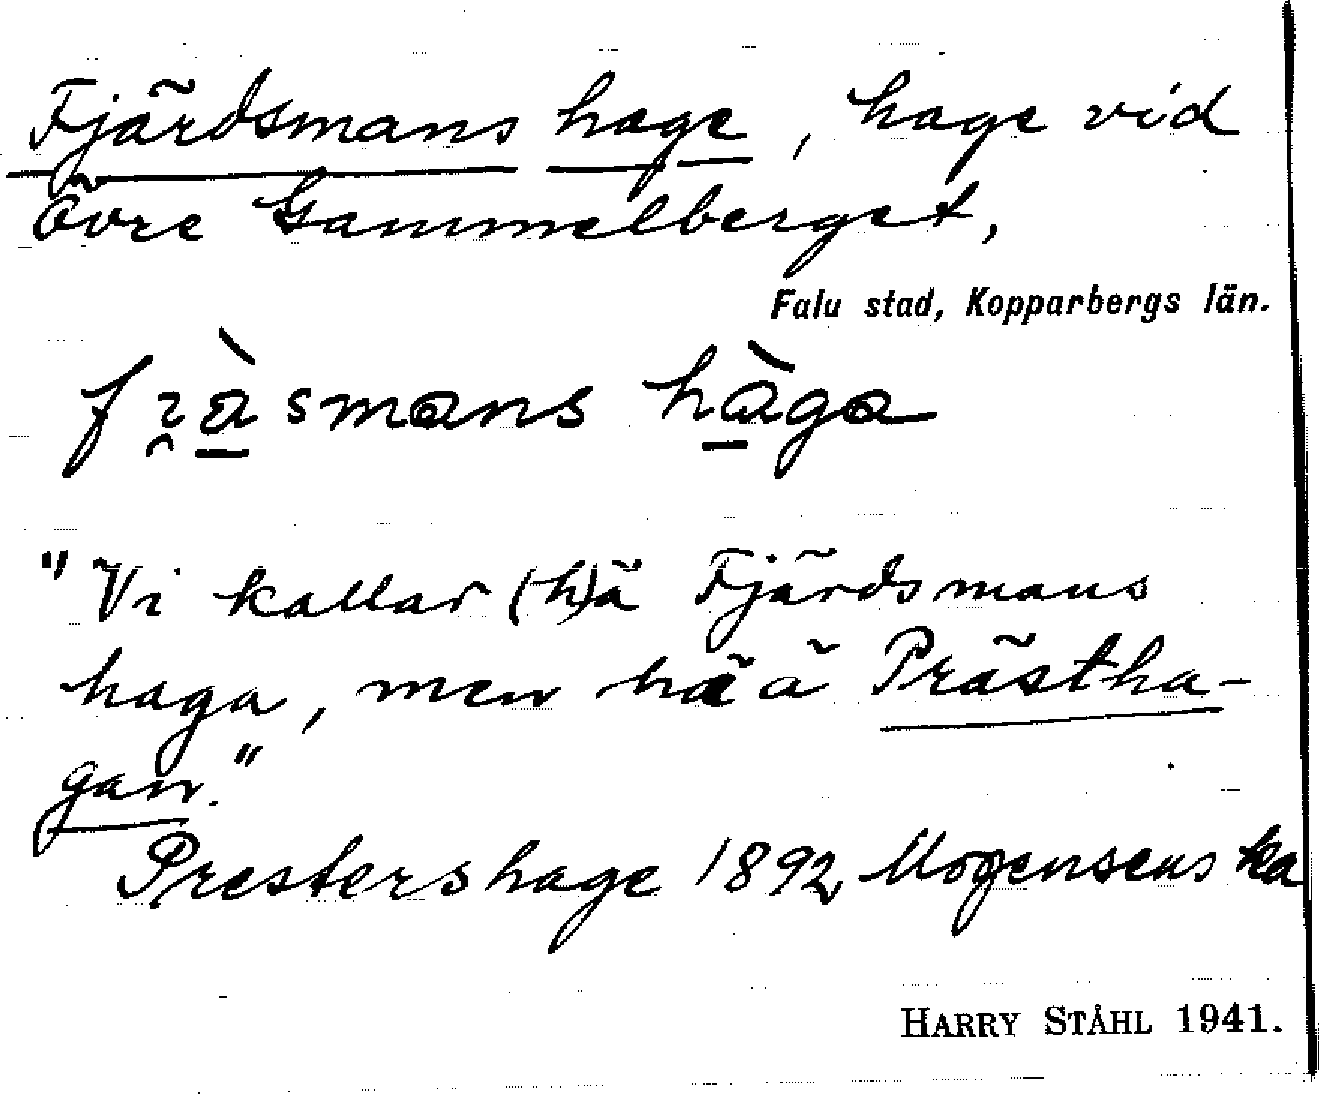 Fjärdsmans hage, hage vid
Övre Gammelberget,
Falu stad, Kopparbergs län.
smans hàga
"Vi kallar (h)ä Fjärdsmans
haga, men hä ä Prästha-
gan."
Presters hage 1892 Mogensens ka
HARRY STÅHL 1941.